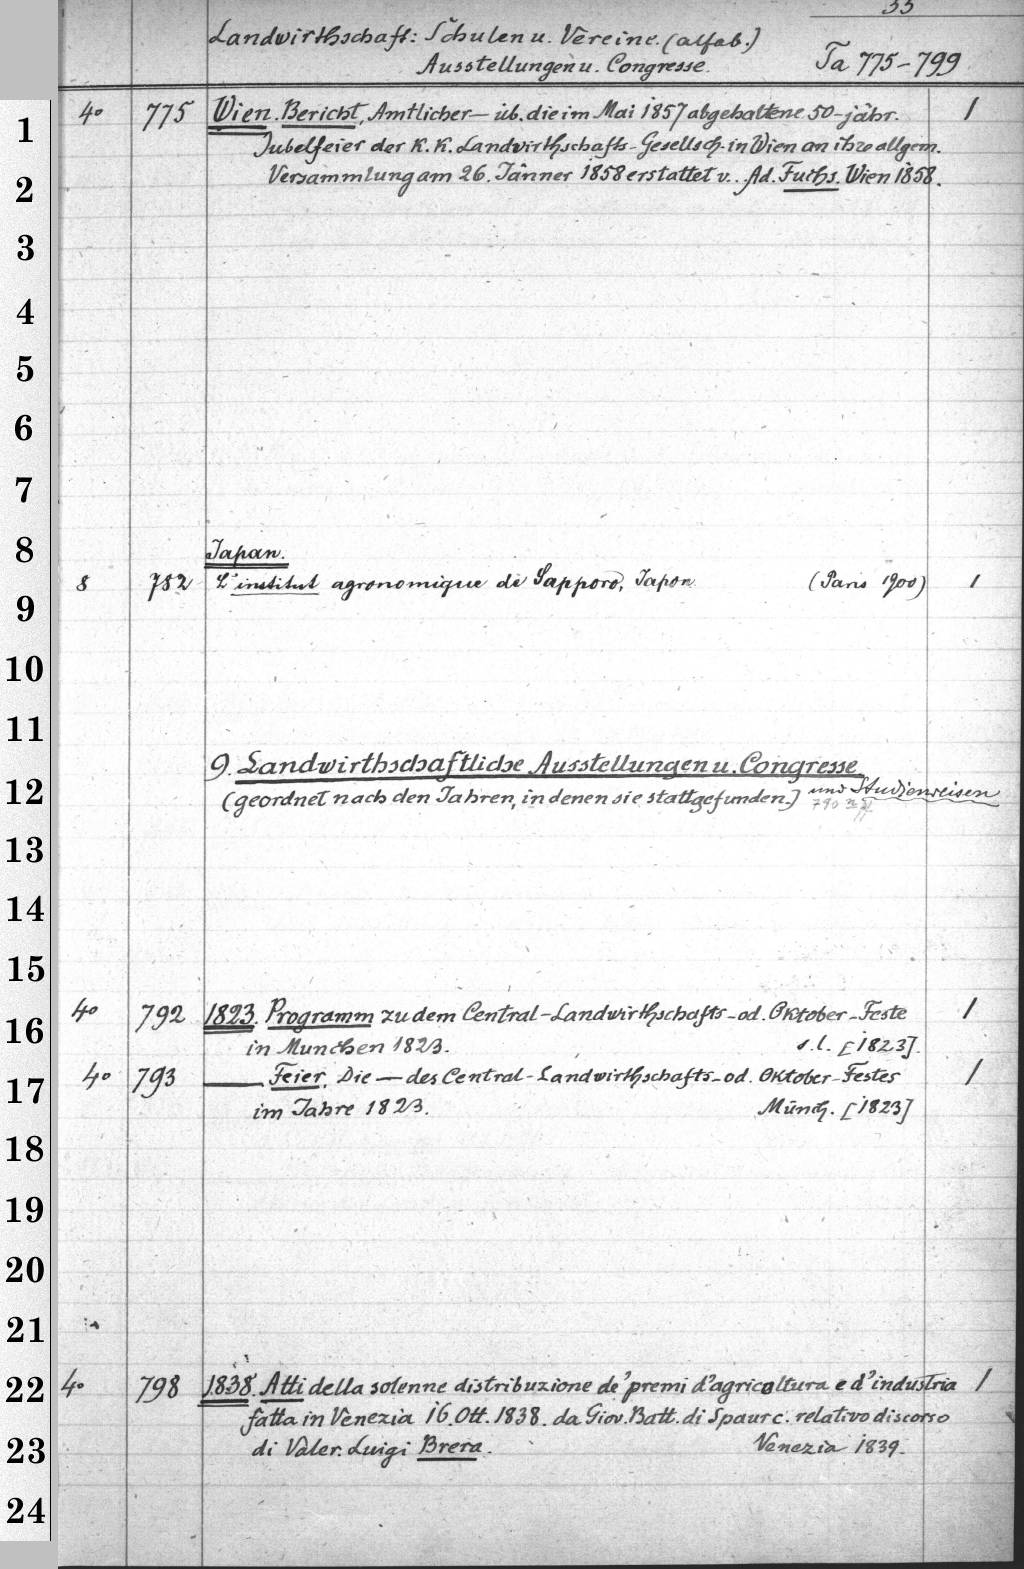 33
Landwirthschaft: Schulen u. Vereine. (alfab.)
Ausstellungen u. Congresse. Ta 775-799
4º 775 Wien. Bericht, Amtlicher — üb. die im Mai 1857 abgehaltene 50-jähr. 1
1
Jubelfeier der K. K. Landwirthschafts-Gesellsch. in Wien an ihre allgem.
Versammlung am 26. Jänner 1858 erstattet v. Ad. Fuchs. Wien 1858.
2
3
4
5
6
7
8 Japan.
8 782 L'institut agronomique de Sapporo, Japon (Paris 1900) 1
9
10
11
9. Landwirthschaftliche Ausstellungen u. Congresse
12 (geordnet nach den Jahren, in denen sie stattgefunden.) und Studienreisen
13
14
15
4º 792 1823. Programm zu dem Central-Landwirthschafts- od. Oktober-Feste 1
16
in München 1823. s.l. [1823].
4º 793 — Feier, Die — des Central-Landwirthschafts- od. Oktober-Festes 1
17
im Jahre 1823. Münch. [1823]
18
19
20
21
22 4º 798 1838. Atti della solenne distribuzione de' premi d'agricoltura e d'industria 1
fatta in Venezia 16. Ott. 1838. da Giov. Batt. di Spaur c. relativo discorso
23 di Valer. Luigi Brera. Venezia 1839.
24